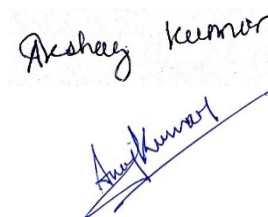 Akshay Kumar
Anuj Kumar